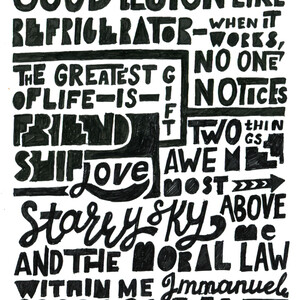 GOOD DESIGN LIKE
REFRIGERATOR—WHEN IT
WORKS,
NO ONE
NOTICES
THE GREATEST
GIFT
OF LIFE—IS—
FRIEND
SHIP
Love
TWO THINGS
AWE ME
MOST
Starry sky ABOVE
me
AND THE MORAL LAW
WITHIN ME Immanuel